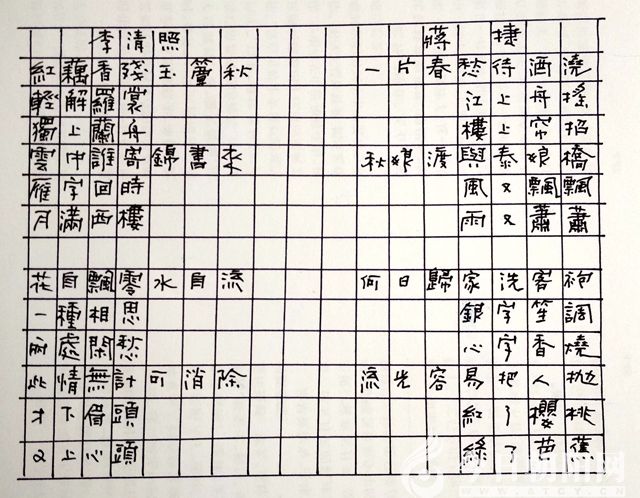 李清照
紅藕香殘玉簟秋
輕解羅裳
獨上蘭舟
雲中誰寄錦書來
雁字回時
月滿西樓
花自飄零水自流
一種相思
兩處閑愁
此情無計可消除
才下借頭
又上心頭
蔣捷
一片春愁待酒澆
江上舟搖
樓上帘招
秋娘渡與泰娘橋
風又飄飄
雨又蕭蕭
何日歸家洗客袍
銀字笙調
心字香燒
流光容易把人拋
紅了櫻桃
綠了芭蕉